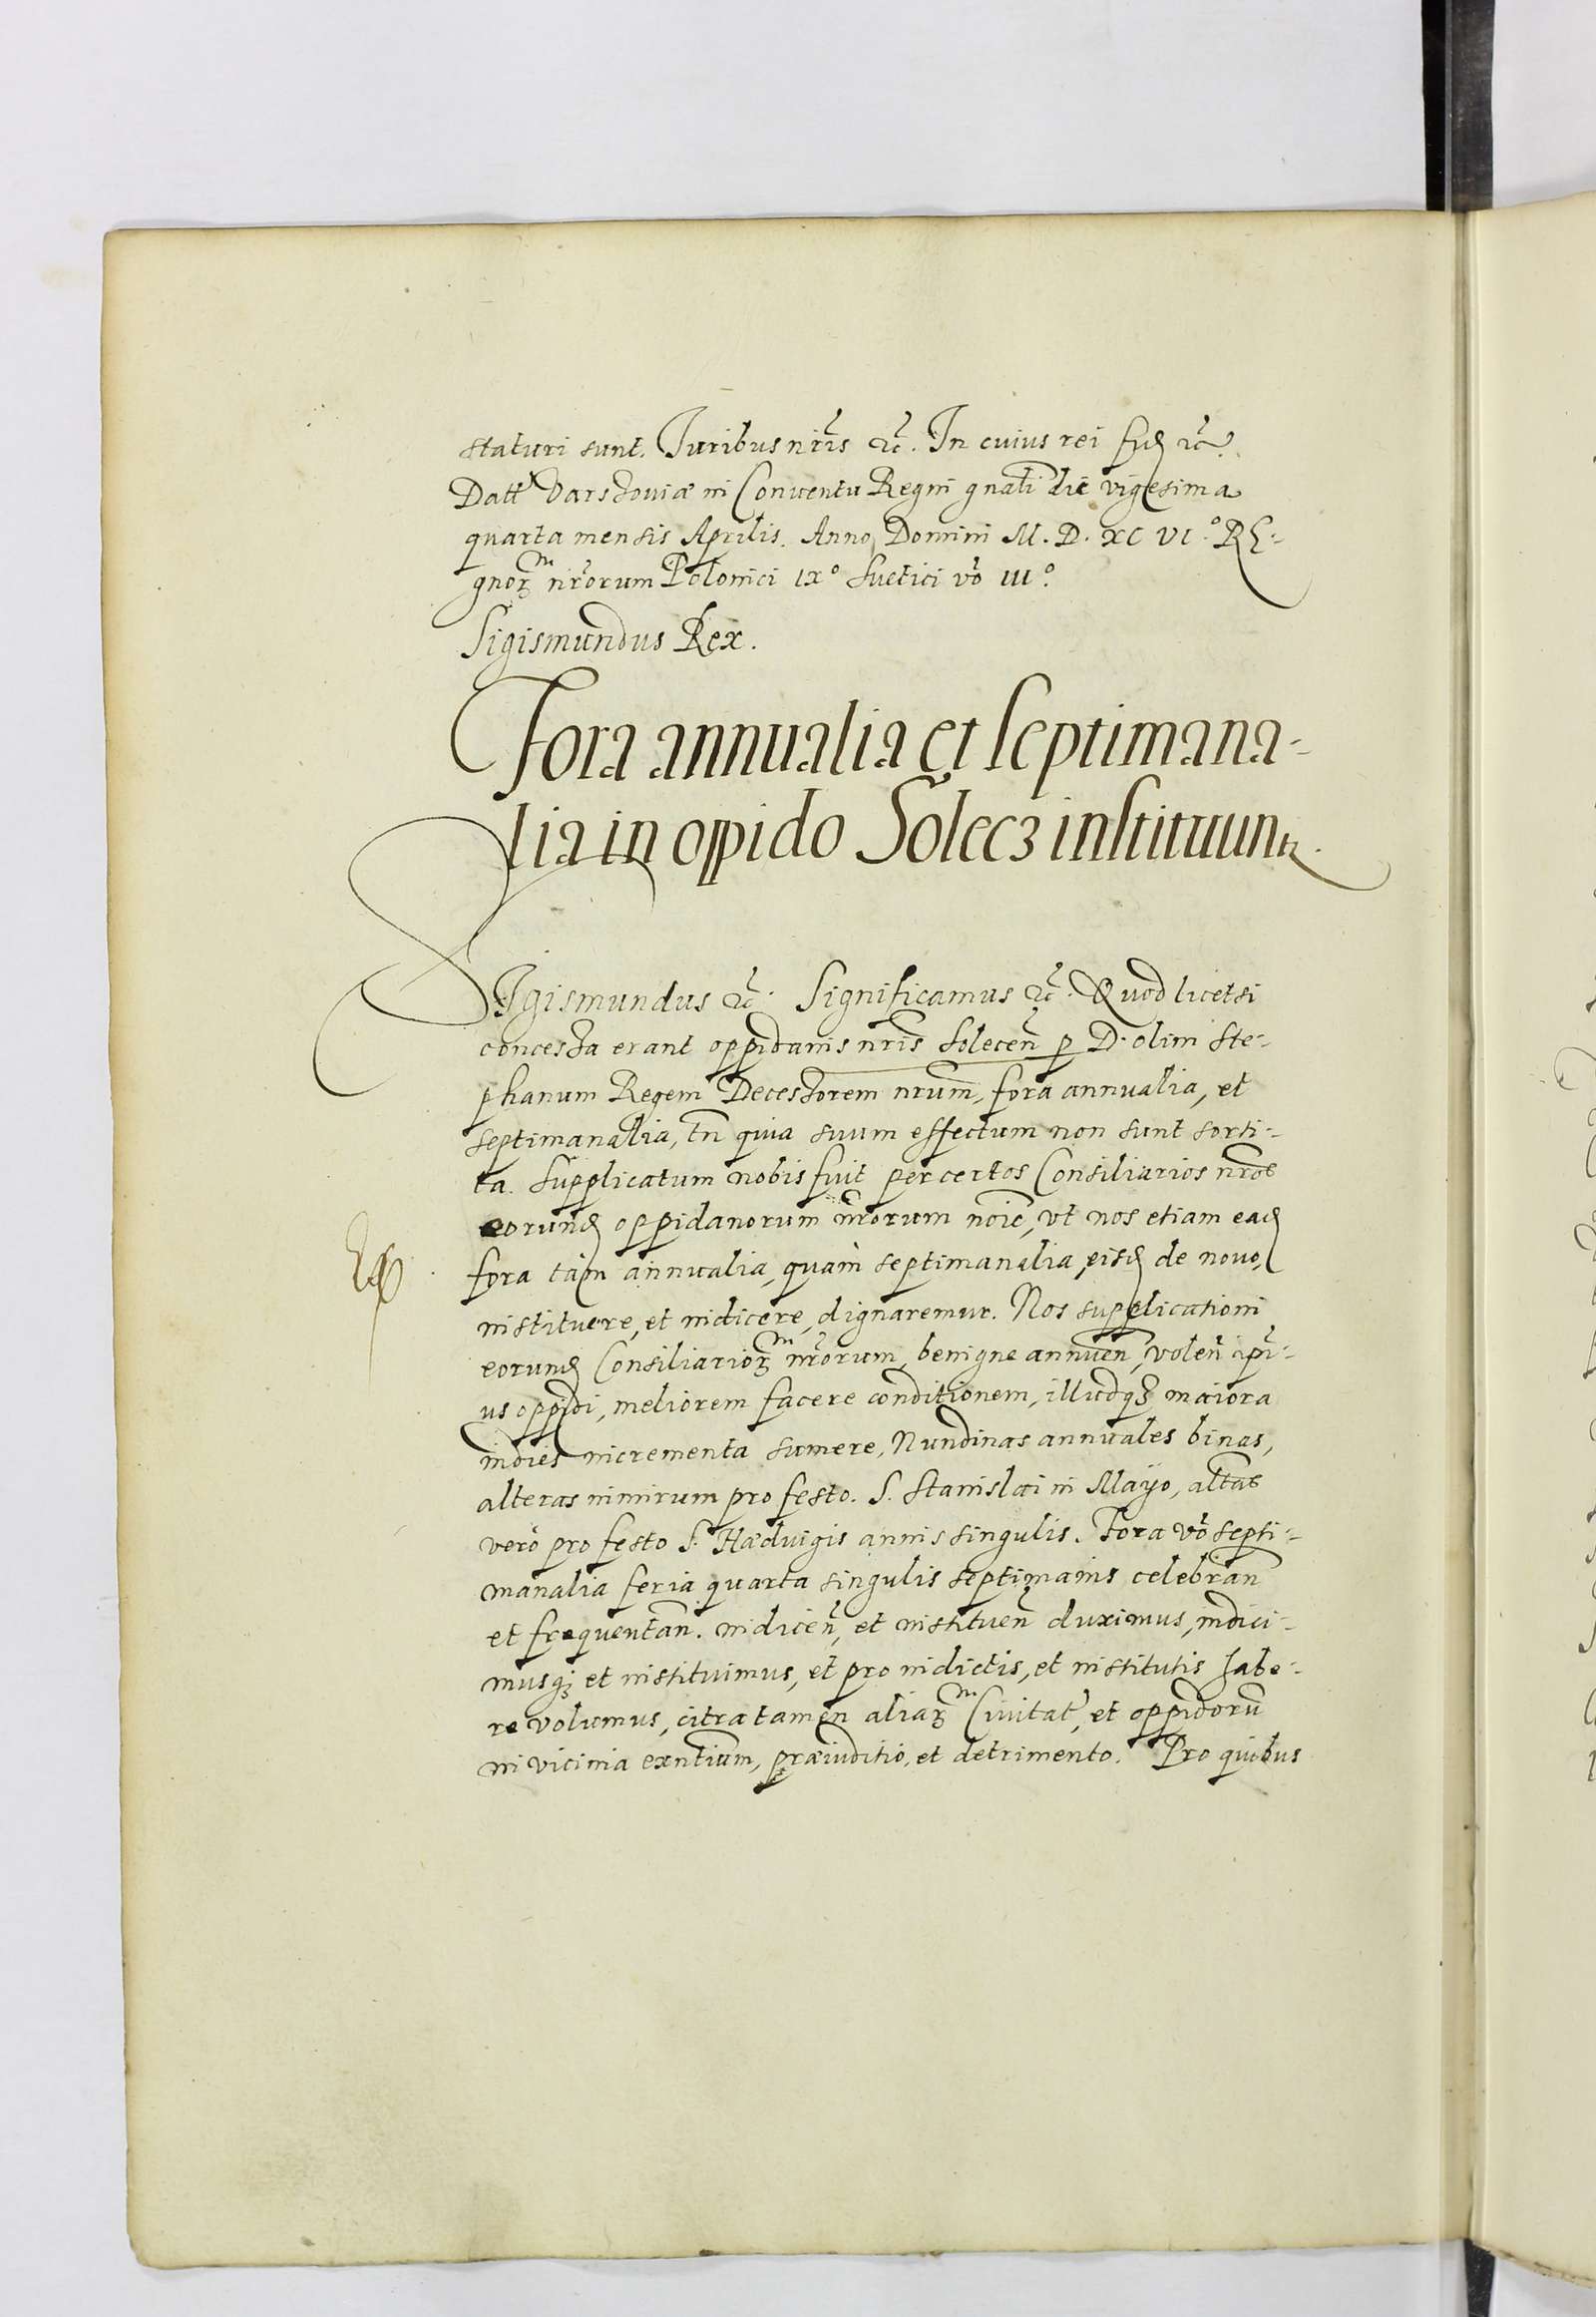 staturi sunt. Juribus nr̃is ac̃. In cuius rei fid ac̃.
Datt Varschoviæ in Conventu Regni gnali die vigesima
quarta mensis Aprilis. Anno Domini M. D. XC VI.° RE-
gnorꝫ nr̃orum Polonici IX° Suetici vo III°.
Sigismundus Rex.
Fora annualia et septimana-
lia in oppido Solecz instituunt.
SIgismundus ac̃. Significamus ac̃. Quod licet si
concessa erant oppidanis nr̃is Solecen̄ p D. olim Ste-
phanum Regem Decessorem nrum, fora annualia, et
septimanalia, tn̄ quia suum effectum non sunt sorti-
ta. Supplicatum nobis fuit per certos Consiliarios nr̃os
eorund oppidanorum nr̃orum noīe, vt nos etiam ead
fora tam annualia, quàm septimanalia, eisd de novo,
instituere, et indicere, dignaremur. Nos supplicationi
eorund Consiliariorꝫ nr̃orum, benigne annuen̄, volen̄ ipi-
us oppidi, meliorem facere conditionem, illudqꝫ maiora
indies incrementa sumere, Nundinas annuales binas,
alteras nimirum pro festo. S. Stanislai in Mayo, altas
verò pro festo S. Hæduigis annis singulis. Fora vo septi-
manalia feria quarta singulis septimanis celebran̄
et frequentan̄. indicen̄, et instituen̄ duximus, indici-
musqꝫ et instituimus, et pro indictis, et institutis habe-
re volumus, citra tamen aliarꝫ Civitat, et oppidorū
in vicinia exn̄tium, præiuditio, et detrimento. Pro quibus